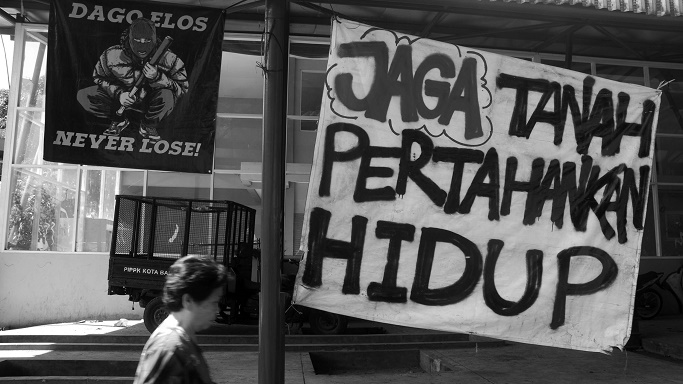 DAGO ELOS
NEVER LOSE!
JAGA TANAH
PERTAHANKAN
HIDUP
PIPPK KOTA BA